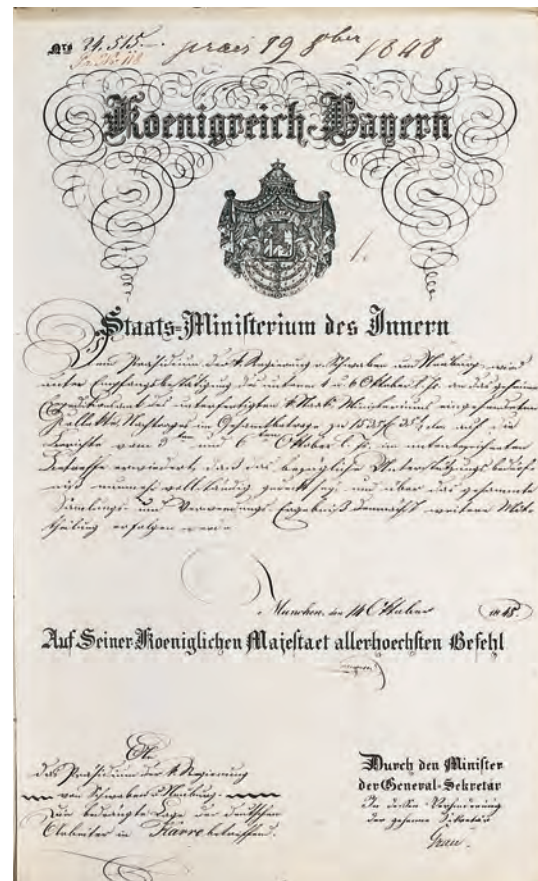 Nro 24,515. praes 19 8ber 1848
Koenigreich Bayern
1.
Staats=Ministerium des Innern
Dem Präsidium der k. Regierung v. Schwaben und Neuburg wird
unter Empfangsbestätigung der unterm 4 u 6 Oktober l. Js. an das geheime
Expeditionsamt des unterfertigten k. Staats Ministeriums eingesendeten
Kollekte Nachtrages im Gesamtbetrage zu auf die
Berichte vom 3ten und 6ten Oktober l. Js. im nebenbezeichneten
Betreffe erwiedert, daß das bezügliche Unterstützungsbedürf
niß nunmehr vollständig gedeckt sey, und über das gesammte
Samlungs- und Verwendungs-Ergebniß demnächst weitere Mit
theilung erfolgen werde
München, den 14 Oktober 1848.
Auf Seiner Koeniglichen Majestaet allerhoechsten Befehl
An
das Präsidium der k. Regierung
von Schwaben u Neuburg.
Die bedrängte Lage der deutschen
Arbeiter in Havre betreffend.
Durch den Minister
der General-Sekretär
In dessen Verhinderung
der geheime Sekretär